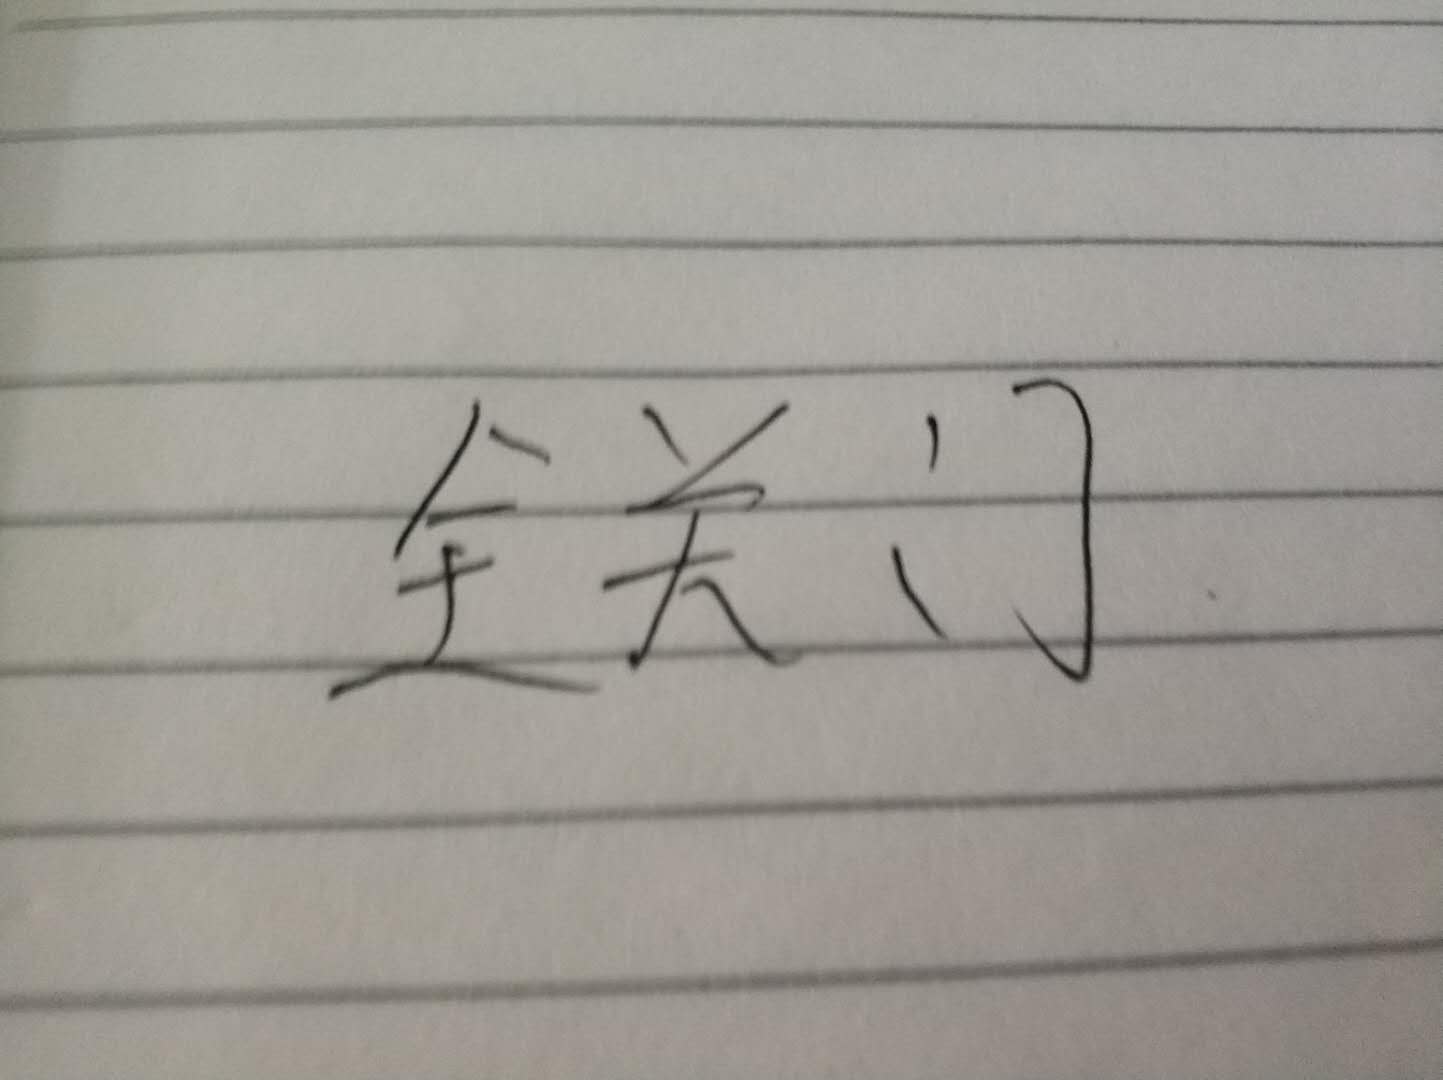 全关门